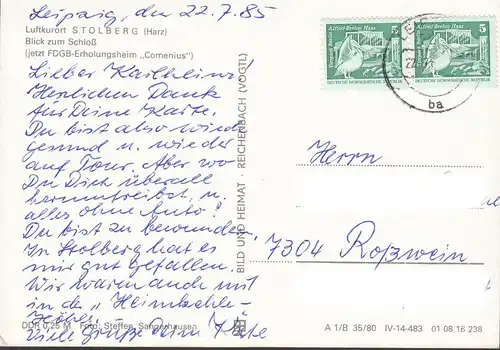 Leipzig, den 22.7.85
Luftkurort STOLBERG (Harz)
Blick zum Schloß
(jetzt FDGB-Erholungsheim „Comenius“)
Lieber Karlheinz!
Herzlichen Dank
für Deine Karte.
Du bist also wieder
gesund u. wieder
auf Tour. Aber wo
Du Dich überall
herumtreibst, u.
alles ohne Auto!
Du bist zu bewundern.
In Stolberg hat es
mir gut gefallen.
Wir waren auch mit
in der „Heimkehle-
Höhle“.
Viele Grüße Deine Käte
DDR 0,25 M Foto: Steffen, Sangerhausen
BILD UND HEIMAT · REICHENBACH (VOGTL)
Alfred-Brehm-Haus 5
Tierpark Berlin
DEUTSCHE DEMOKRATISCHE REPUBLIK
Alfred-Brehm-Haus 5
DEUTSCHE DEMOKRATISCHE REPUBLIK
ba
Herrn
7304 Roßwein
A 1/B 35/80 IV-14-483 01 08 16 238